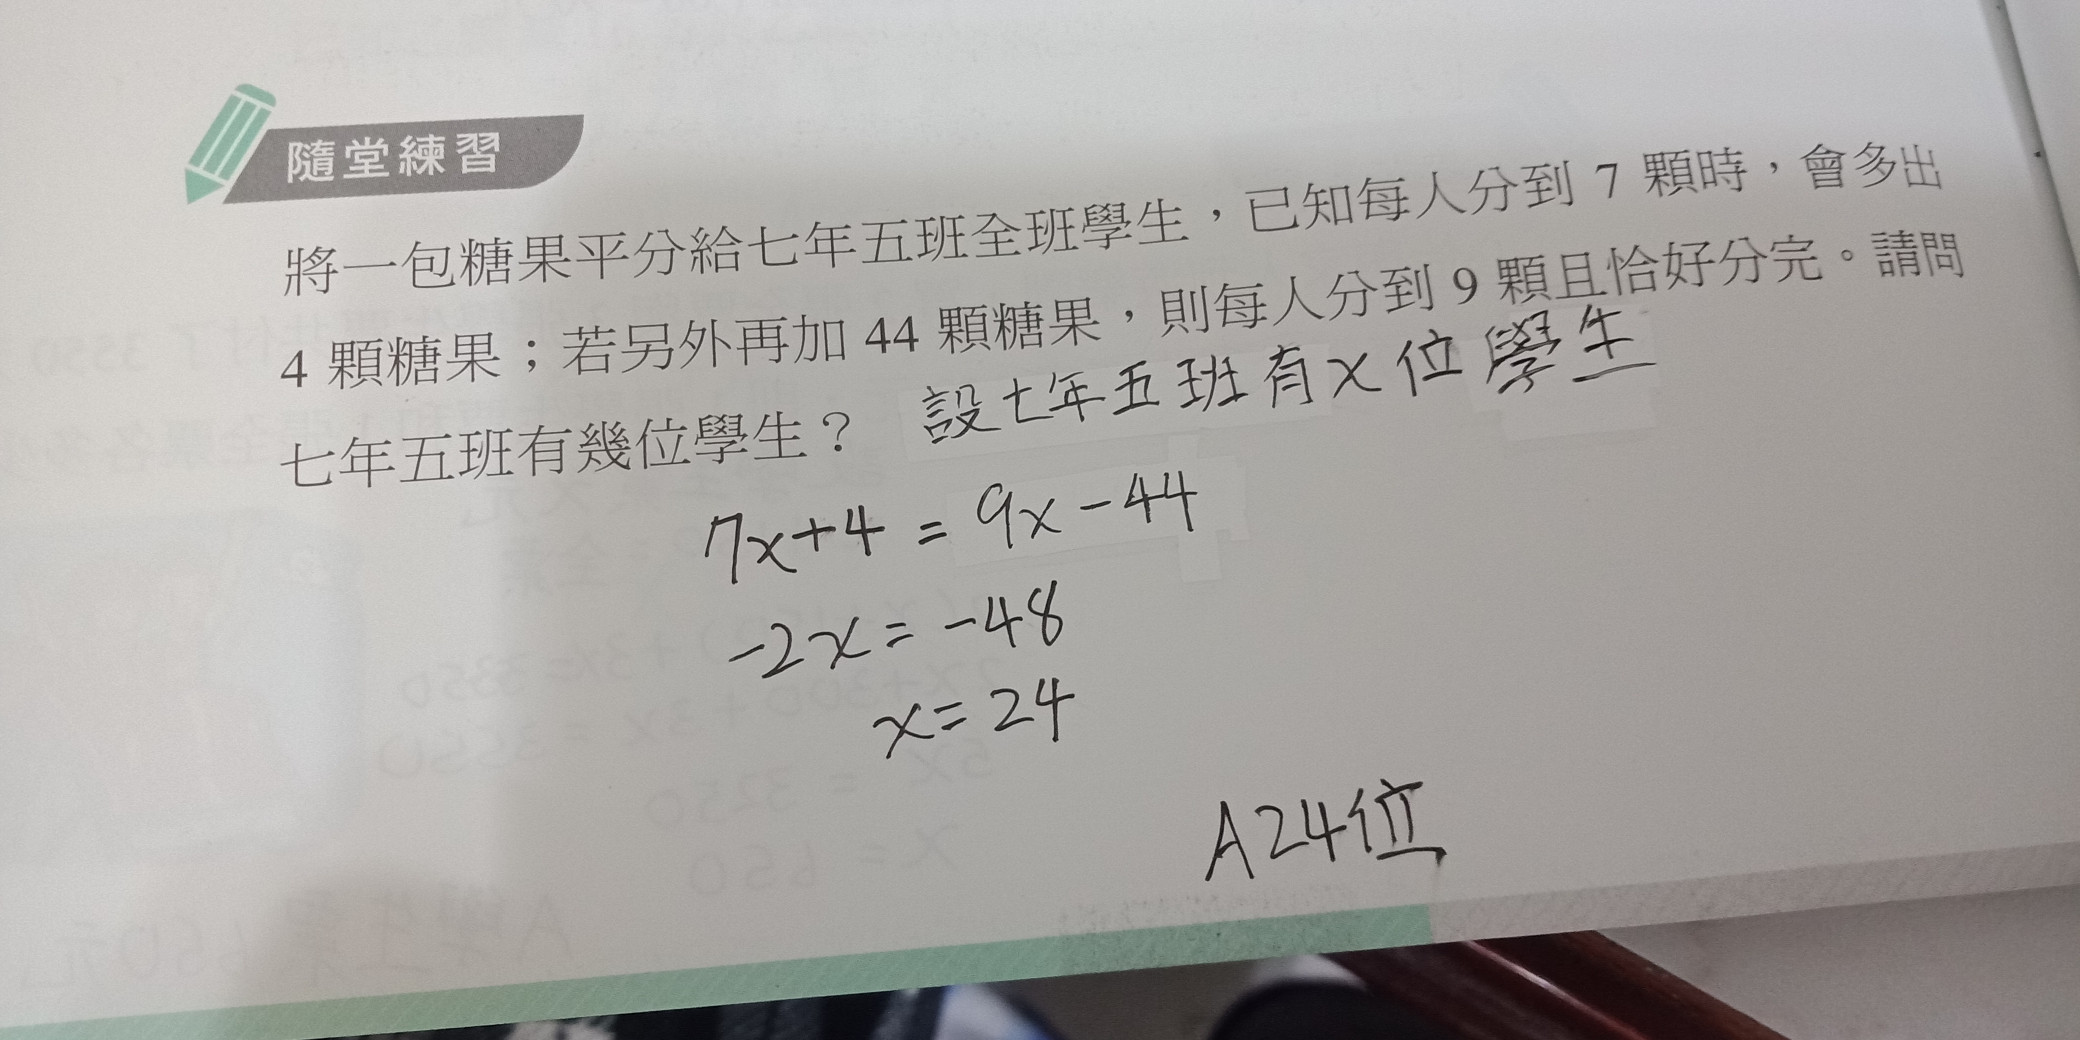 隨堂練習
將一包糖果平分給七年五班全班學生，已知每人分到 7 顆時，會多出
4 顆糖果；若另外再加 44 顆糖果，則每人分到 9 顆且恰好分完。請問
七年五班有幾位學生？
設七年五班有x位學生
7x+4=9x-44
-2x=-48
x=24
A24位